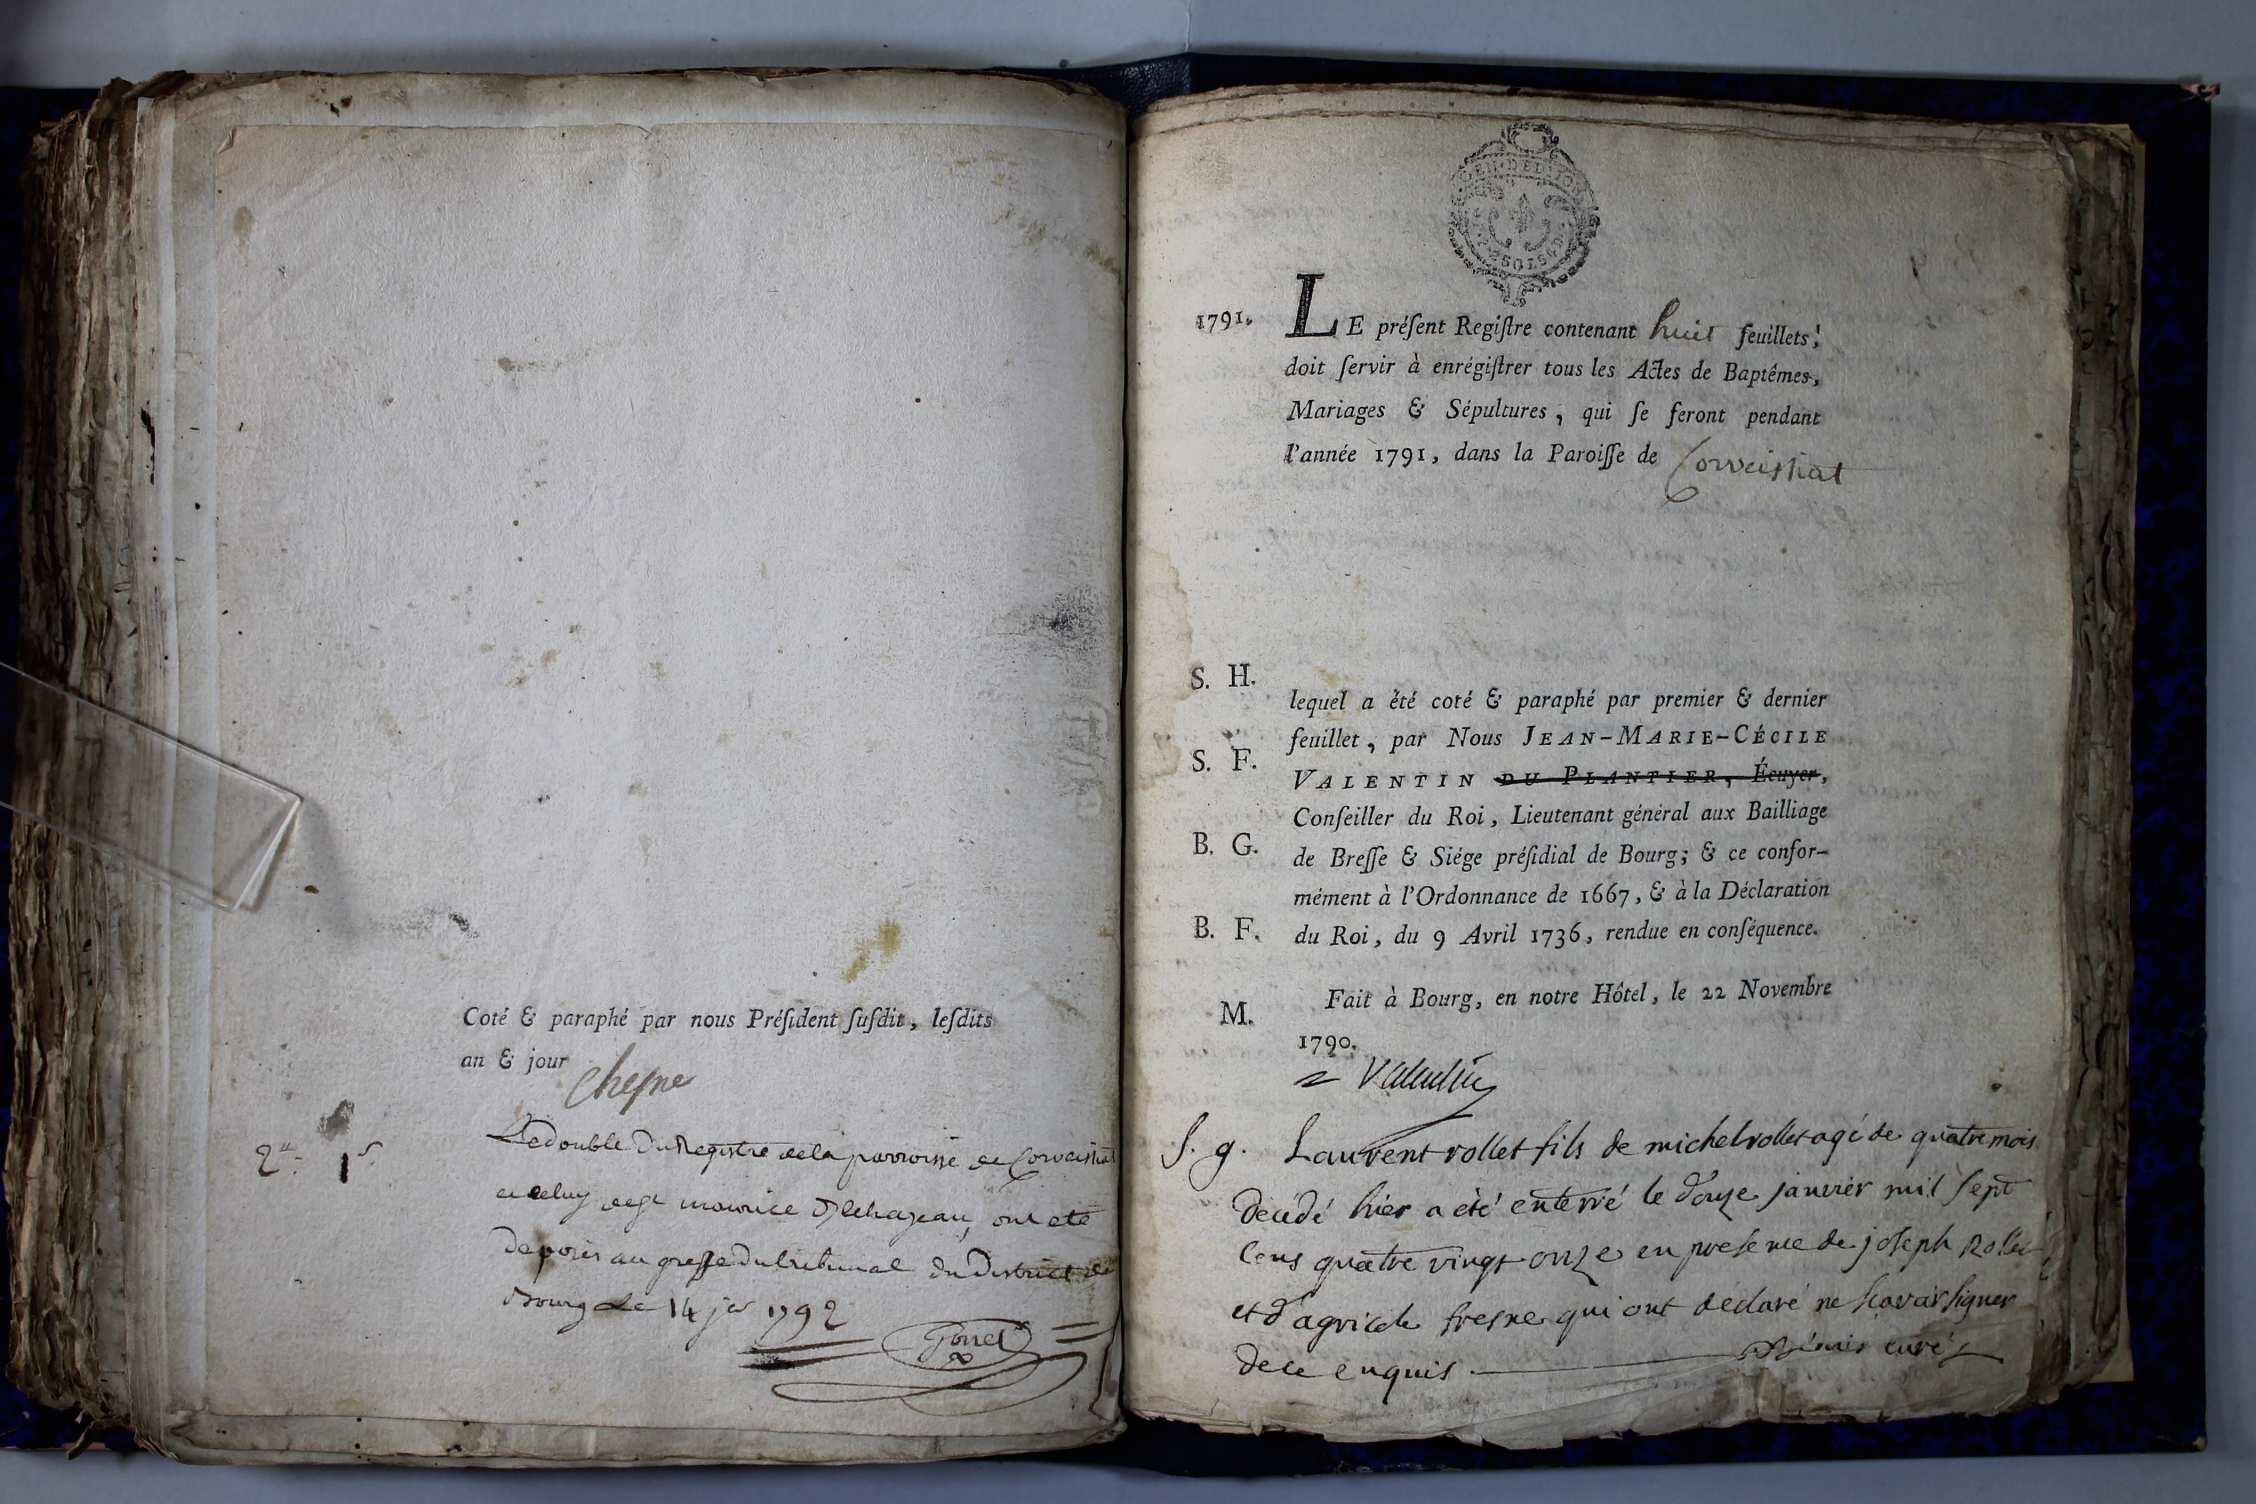 Coté & paraphé par nous Préſident ſuſdit, leſdits
an & jour
Chesne
2
1
Le double du Registre de la parroisse de Corveissiat
et celuy de st maurice d'Echazeau, ont ete
deposés au greffe du tribunal du District de
Bourg Le 14 jer 1792
Gonet
1791.
LE préſent Regiſtre contenant huit feuillets,
doit ſervir à enrégiſtrer tous les Actes de Baptêmes,
Mariages & Sépultures, qui ſe feront pendant
l'année 1791, dans la Paroiſſe de Corveissiat
S. H.
lequel a été coté & paraphé par premier & dernier
feuillet, par Nous JEAN-MARIE-CÉCILE
S. F.
VALENTIN DU PLANTIER, Écuyer,
Conſeiller du Roi, Lieutenant général aux Bailliage
B. G.
de Breſſe & Siége préſidial de Bourg; & ce confor-
mément à l'Ordonnance de 1667, & à la Déclaration
B. F.
du Roi, du 9 Avril 1736, rendue en conſéquence.
Fait à Bourg, en notre Hôtel, le 22 Novembre
M.
1790.
Valentin
S. g.
Laurent rollet fils de michel rollet agé de quatre mois
décédé hier a été enterré le douze janvier mil sept
cens quatre vingt onze en presence de joseph Rolet
et d'agricole fresne qui ont déclaré ne scavoir signer
de ce enquis
curé